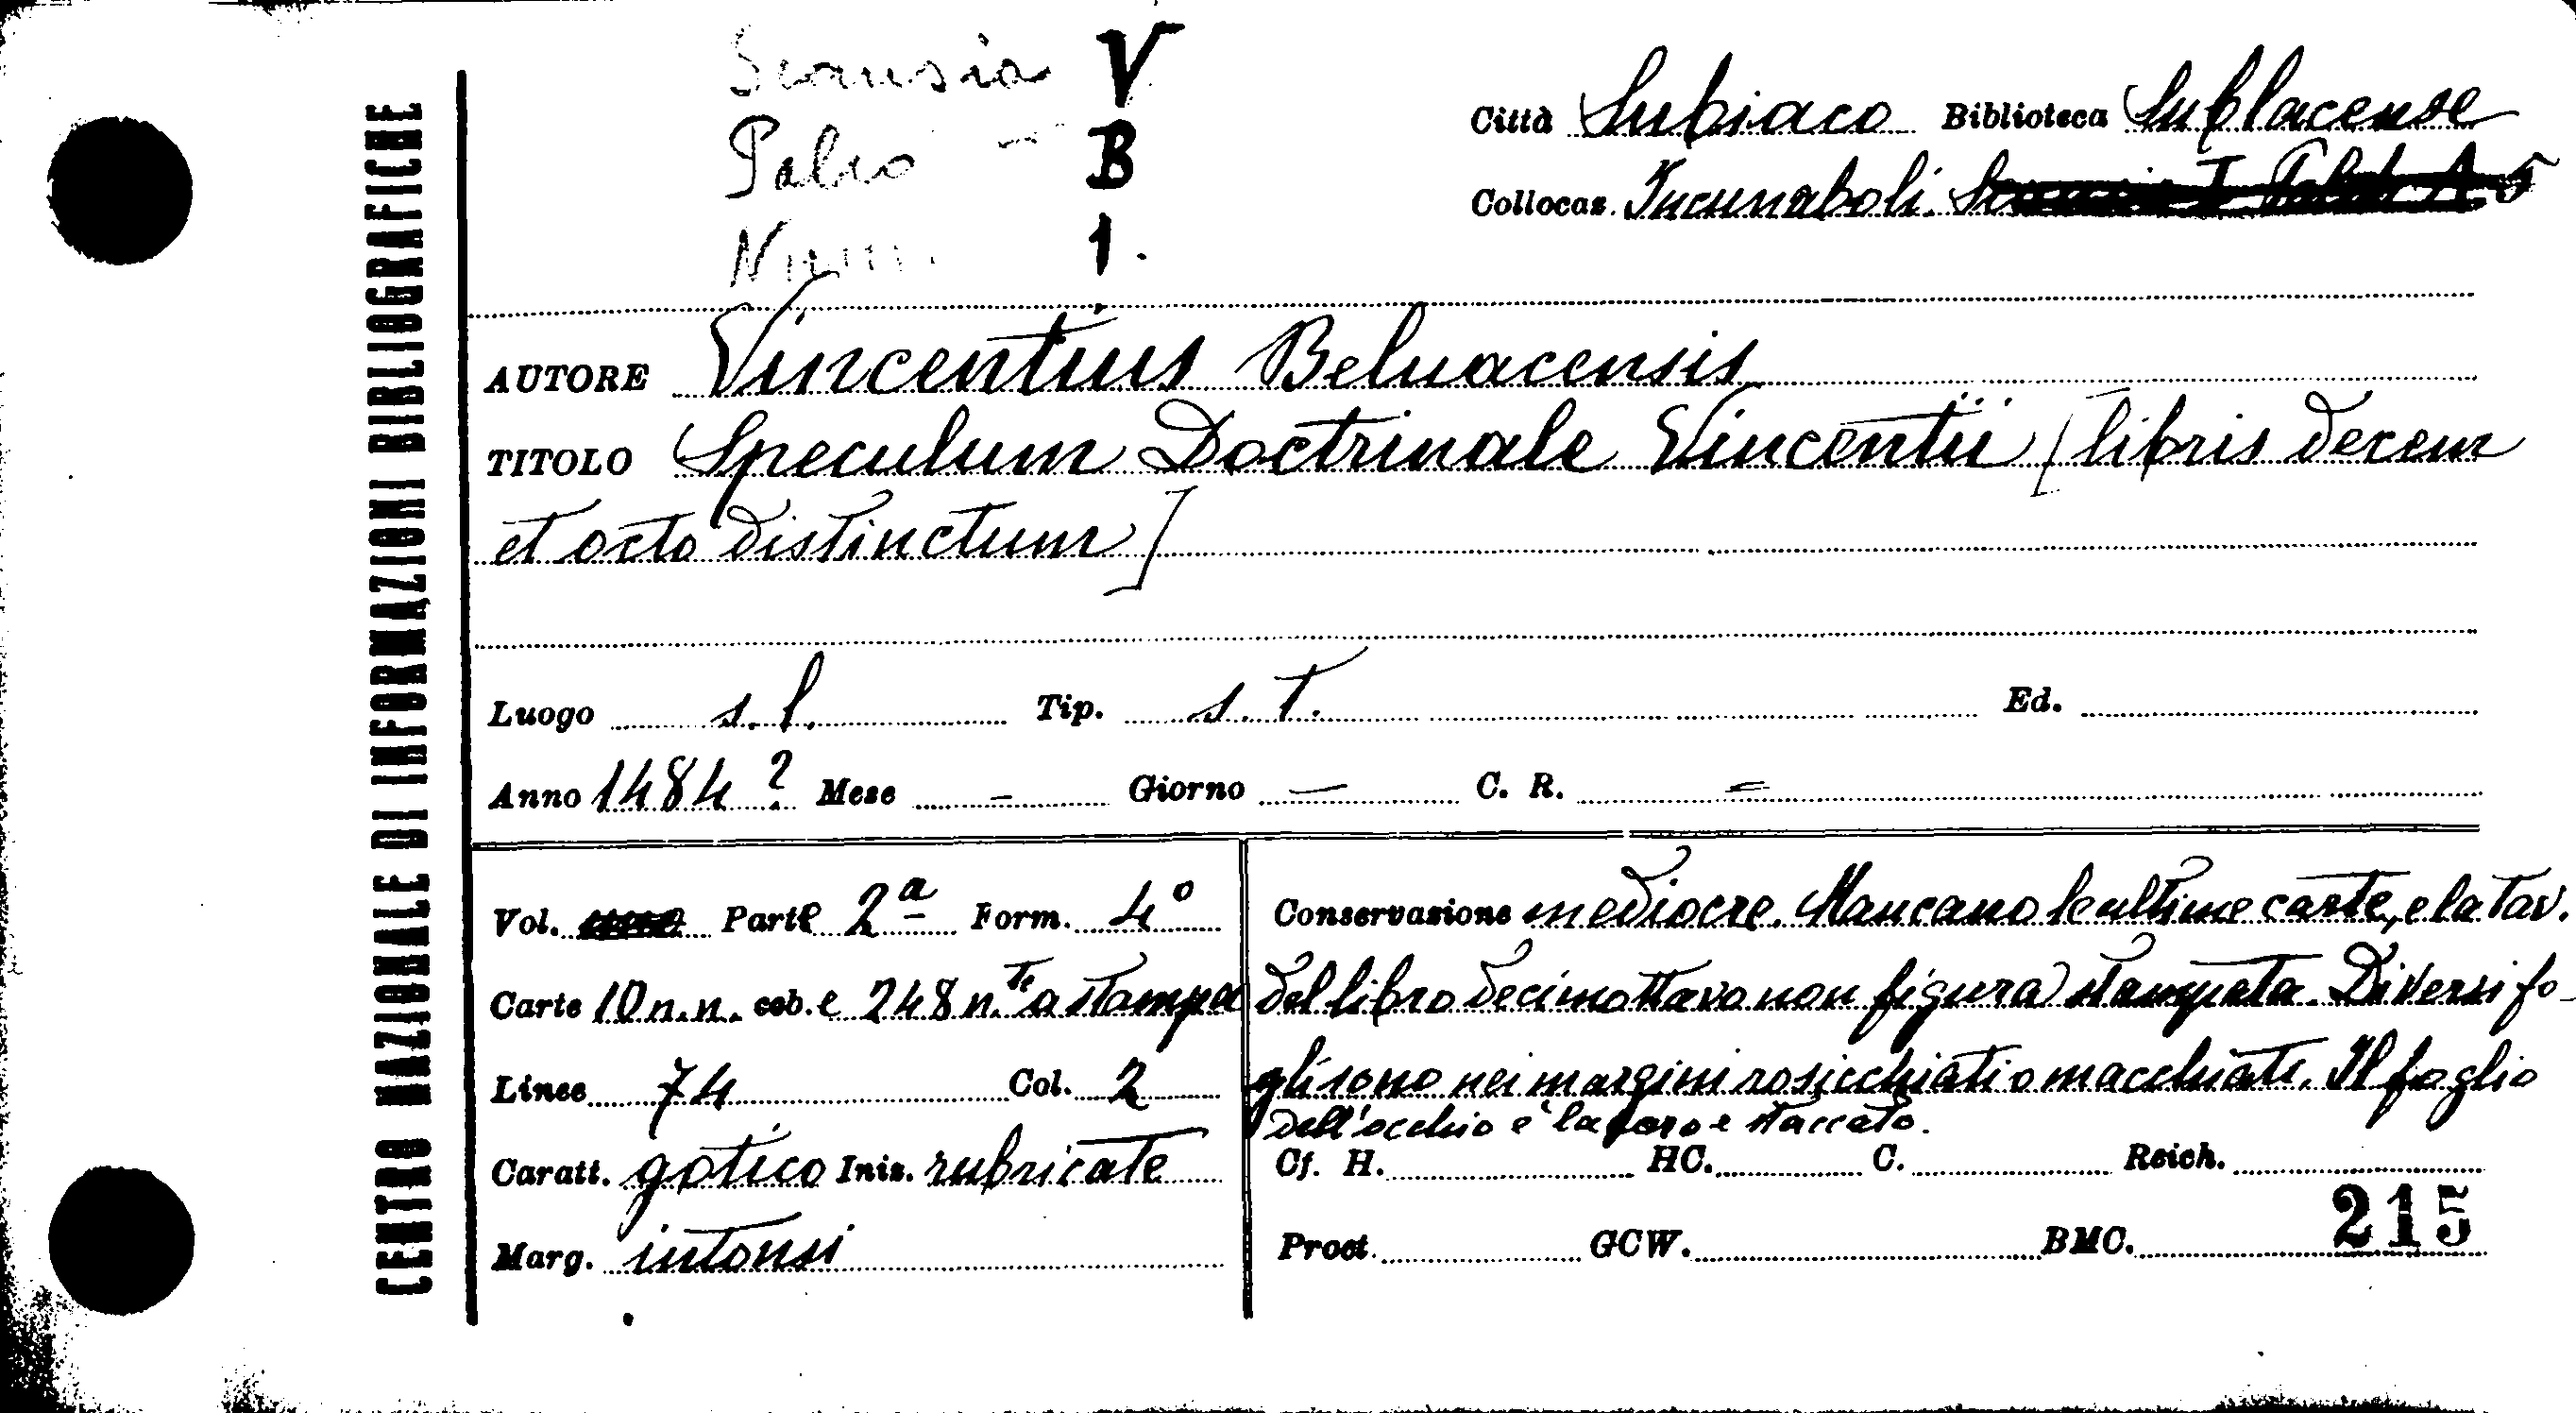 CENTRO NAZIONALE DI INFORMAZIONI BIBLIOGRAFICHE
Scansia V
Palco - B
Num. 1.
Città Subiaco Biblioteca Sublacense
Collocaz. Incunaboli. Scansia I Palch A 5
AUTORE Vincentius Beluacensis
TITOLO Speculum Doctrinale Vincentii [libris decem
et octo distinctum]
Luogo s. l. Tip. s. t. Ed.
Anno 1484? Mese - Giorno - C. R. =
Vol. Parte 2ª Form. 4°
Carte 10 n. n. seb. e 248 n.te a stampa
Linee 74 Col. 2
Caratt. gotico Iniz. rubricate
Marg. intonsi
Conservazione mediocre. Mancano le ultime carte, e la tav.
del libro decimottavo non figura stampata. Diversi fo-
gli sono nei margini rosicchiati o macchiati. Il foglio
dell'occhio è lacero e staccato.
Cf. H. HC. C. Reich.
Proct. GCW. BMC. 215